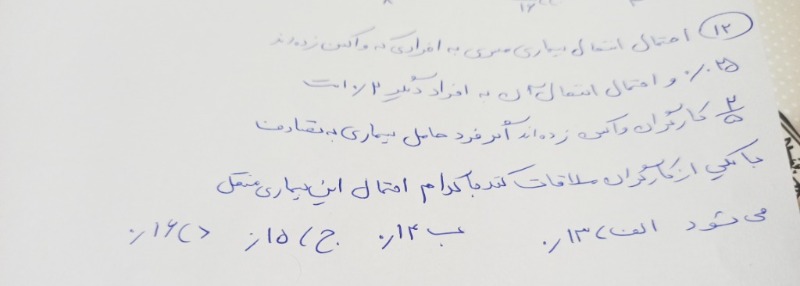 ۱۲) احتمال انتقال بیماری مسری به افرادی که واکسن زده‌اند
۰٫۲۵ و احتمال انتقال آن به افراد دیگر ۰٫۲ است
۳/۵ کارگران واکسن زده‌اند اگر فرد حامل بیماری به تصادف
با یکی از کارگران ملاقات کند با کدام احتمال این بیماری منتقل
می‌شود الف) ۰٫۱۳ ب) ۰٫۱۴ ج) ۰٫۱۵ د) ۰٫۱۶